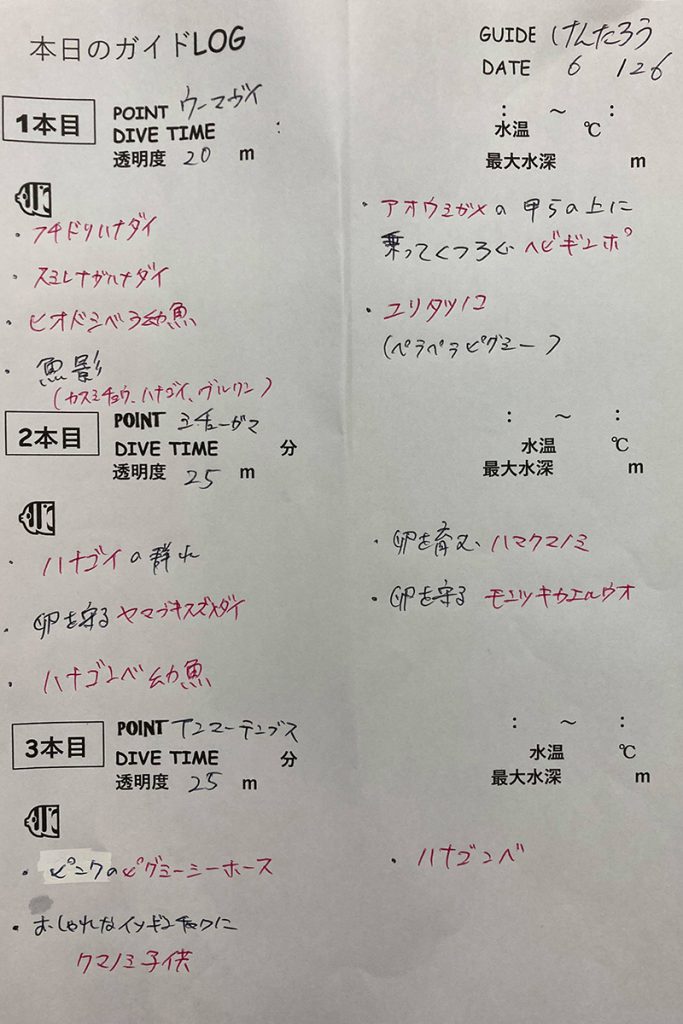 本日のガイドLOG
GUIDE けんたろう
DATE 6 126
1本目
POINT ウーマガイ
DIVE TIME :
透明度 20 m
: ~ :
水温 ℃
最大水深 m
・フチドリハナダイ
・スミレナガハナダイ
・ヒオドシベラ幼魚
・魚影
(カスミチョウ、ハナゴイ、グルクン)
・アオウミガメの甲らの上に
乗ってくつろぐヘビギンポ
・ユリタツノコ
(ペラペラピグミー)
2本目
POINT ミチューガマ
DIVE TIME 分
透明度 25 m
: ~ :
水温 ℃
最大水深 m
・ハナゴイの群れ
・卵を守るヤマブキスズメダイ
・ハナゴンベ幼魚
・卵を育てハマクマノミ
・卵を守るモンツキカエルウオ
3本目
POINT アンマーテンブス
DIVE TIME 分
透明度 25 m
: ~ :
水温 ℃
最大水深 m
・ピンクのピグミーシーホース
・おしゃれなイソギンチャクに
クマノミ子供
・ハナゴンベ